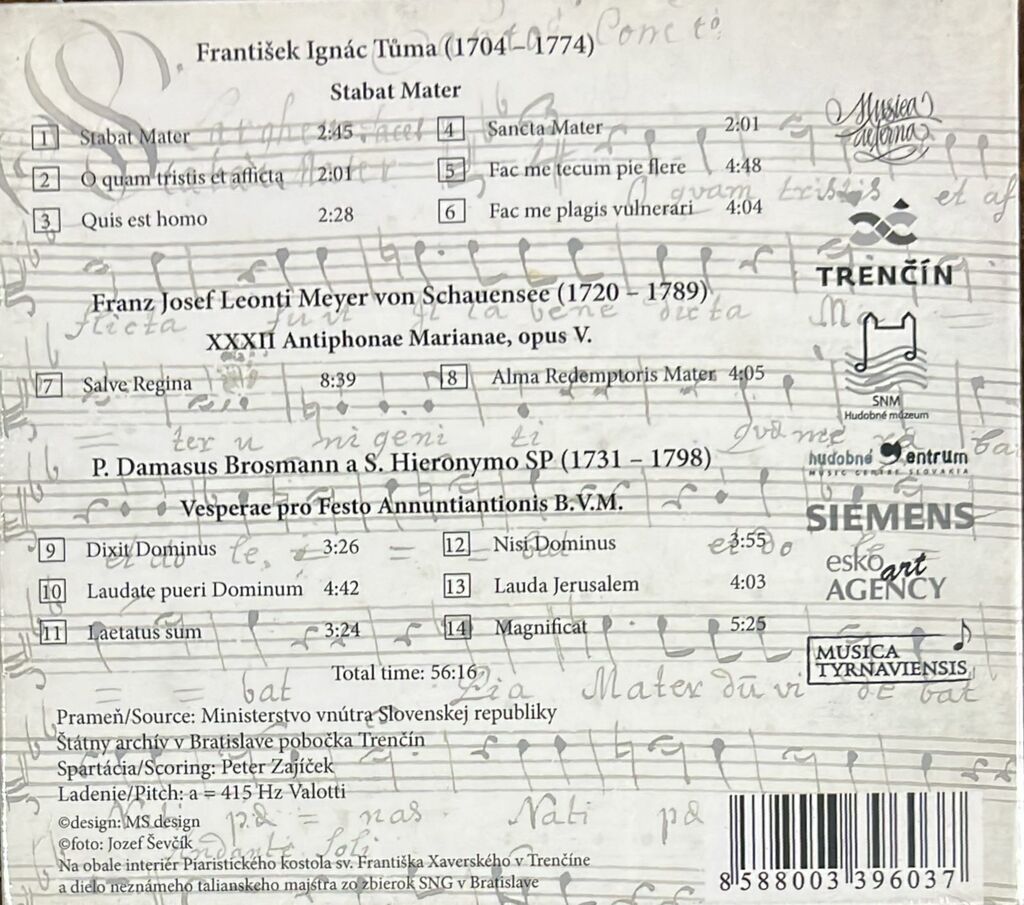 František Ignác Tůma (1704 – 1774)
Stabat Mater
1 Stabat Mater 2:45
2 O quam tristis et afflicta 2:01
3 Quis est homo 2:28
4 Sancta Mater 2:01
5 Fac me tecum pie flere 4:48
6 Fac me plagis vulnerari 4:04
Franz Josef Leonti Meyer von Schauensee (1720 – 1789)
XXXII Antiphonae Marianae, opus V.
7 Salve Regina 8:39
8 Alma Redemptoris Mater 4:05
P. Damasus Brosmann a S. Hieronymo SP (1731 – 1798)
Vesperae pro Festo Annuntiantionis B.V.M.
9 Dixit Dominus 3:26
10 Laudate pueri Dominum 4:42
11 Laetatus sum 3:24
12 Nisi Dominus 3:55
13 Lauda Jerusalem 4:03
14 Magnificat 5:25
Total time: 56:16
Prameň/Source: Ministerstvo vnútra Slovenskej republiky
Štátny archív v Bratislave pobočka Trenčín
Spartácia/Scoring: Peter Zajíček
Ladenie/Pitch: a = 415 Hz Valotti
©design: MS design
©foto: Jozef Ševčík
Na obale interiér Piaristického kostola sv. Františka Xaverského v Trenčíne
a dielo neznámeho talianskeho majstra zo zbierok SNG v Bratislave
Musica
aeterna
TRENČÍN
SNM
Hudobné múzeum
hudobné centrum
MUSIC CENTRE SLOVAKIA
SIEMENS
esko art
AGENCY
MUSICA
TYRNAVIENSIS
8 588003 396037
Conc to
quam tristis et af
flicta fuit il la bene dicta
ter u ni geni ti
bat
Pia Mater dū vi de bat
nas Nati
Andante Soli